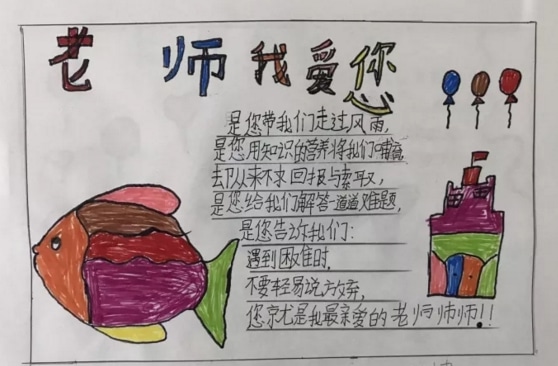 老师我爱您
是您带我们走过风雨,
是您用知识的营养将我们哺育
去卩从来不求回报与索取,
是您给我们解答一道道难题,
是您告诉我们:
遇到困难时,
不要轻易说放弃,
您京尤是我最亲爱的老师师师!!